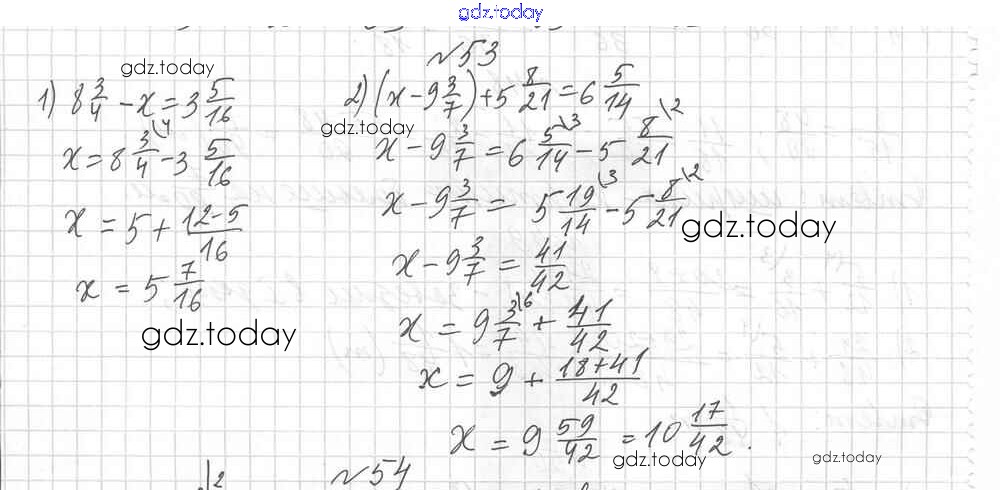 gdz.today
№53
gdz.today
1) 8 3/4 - x = 3 5/16
x = 8 3/4 \4 - 3 5/16
x = 5 + (12-5)/16
x = 5 7/16
gdz.today
2) (x - 9 3/7) + 5 8/21 = 6 5/14
gdz.today
x - 9 3/7 = 6 5/14 \3 - 5 8/21 \2
x - 9 3/7 = 5 19/14 \3 - 5 8/21 \2
gdz.today
x - 9 3/7 = 41/42
x = 9 3/7 \6 + 41/42
x = 9 + (18+41)/42
x = 9 59/42 = 10 17/42.
gdz.today
gdz.today
№54
\2